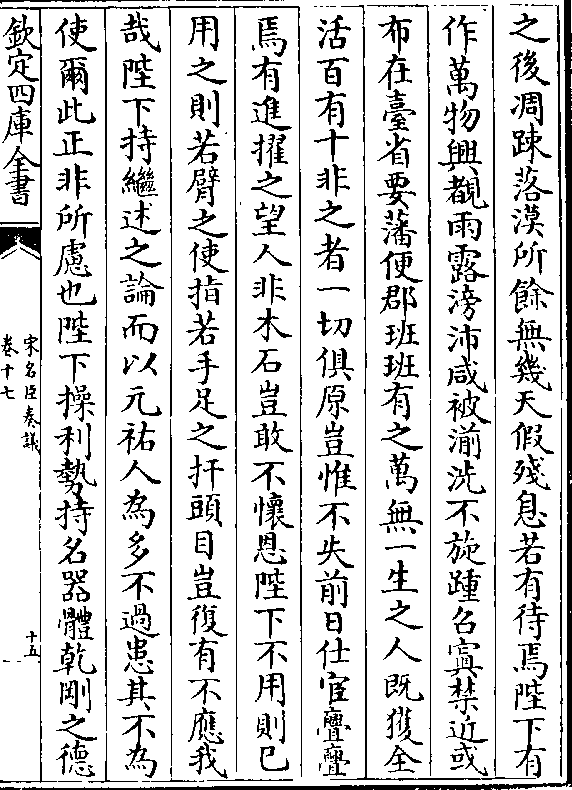 之後凋踈落漠所餘無幾天假殘息若有待焉陛下有
作萬物興覩雨露滂沛咸被湔洗不旋踵召寘禁近或
布在臺省要藩便郡班班有之萬無一生之人既獲全
活百有十非之者一切俱原豈惟不失前日仕宦亹亹
焉有進擢之望人非木石豈敢不懷恩陛下不用則已
用之則若臂之使指若手足之扞頭目豈復有不應我
哉陛下持繼述之論而以元祐人為多不過患其不為
使爾此正非所慮也陛下操利勢持名器體乾剛之德
欽定四庫全書
宋名臣奏議
卷十七
十五